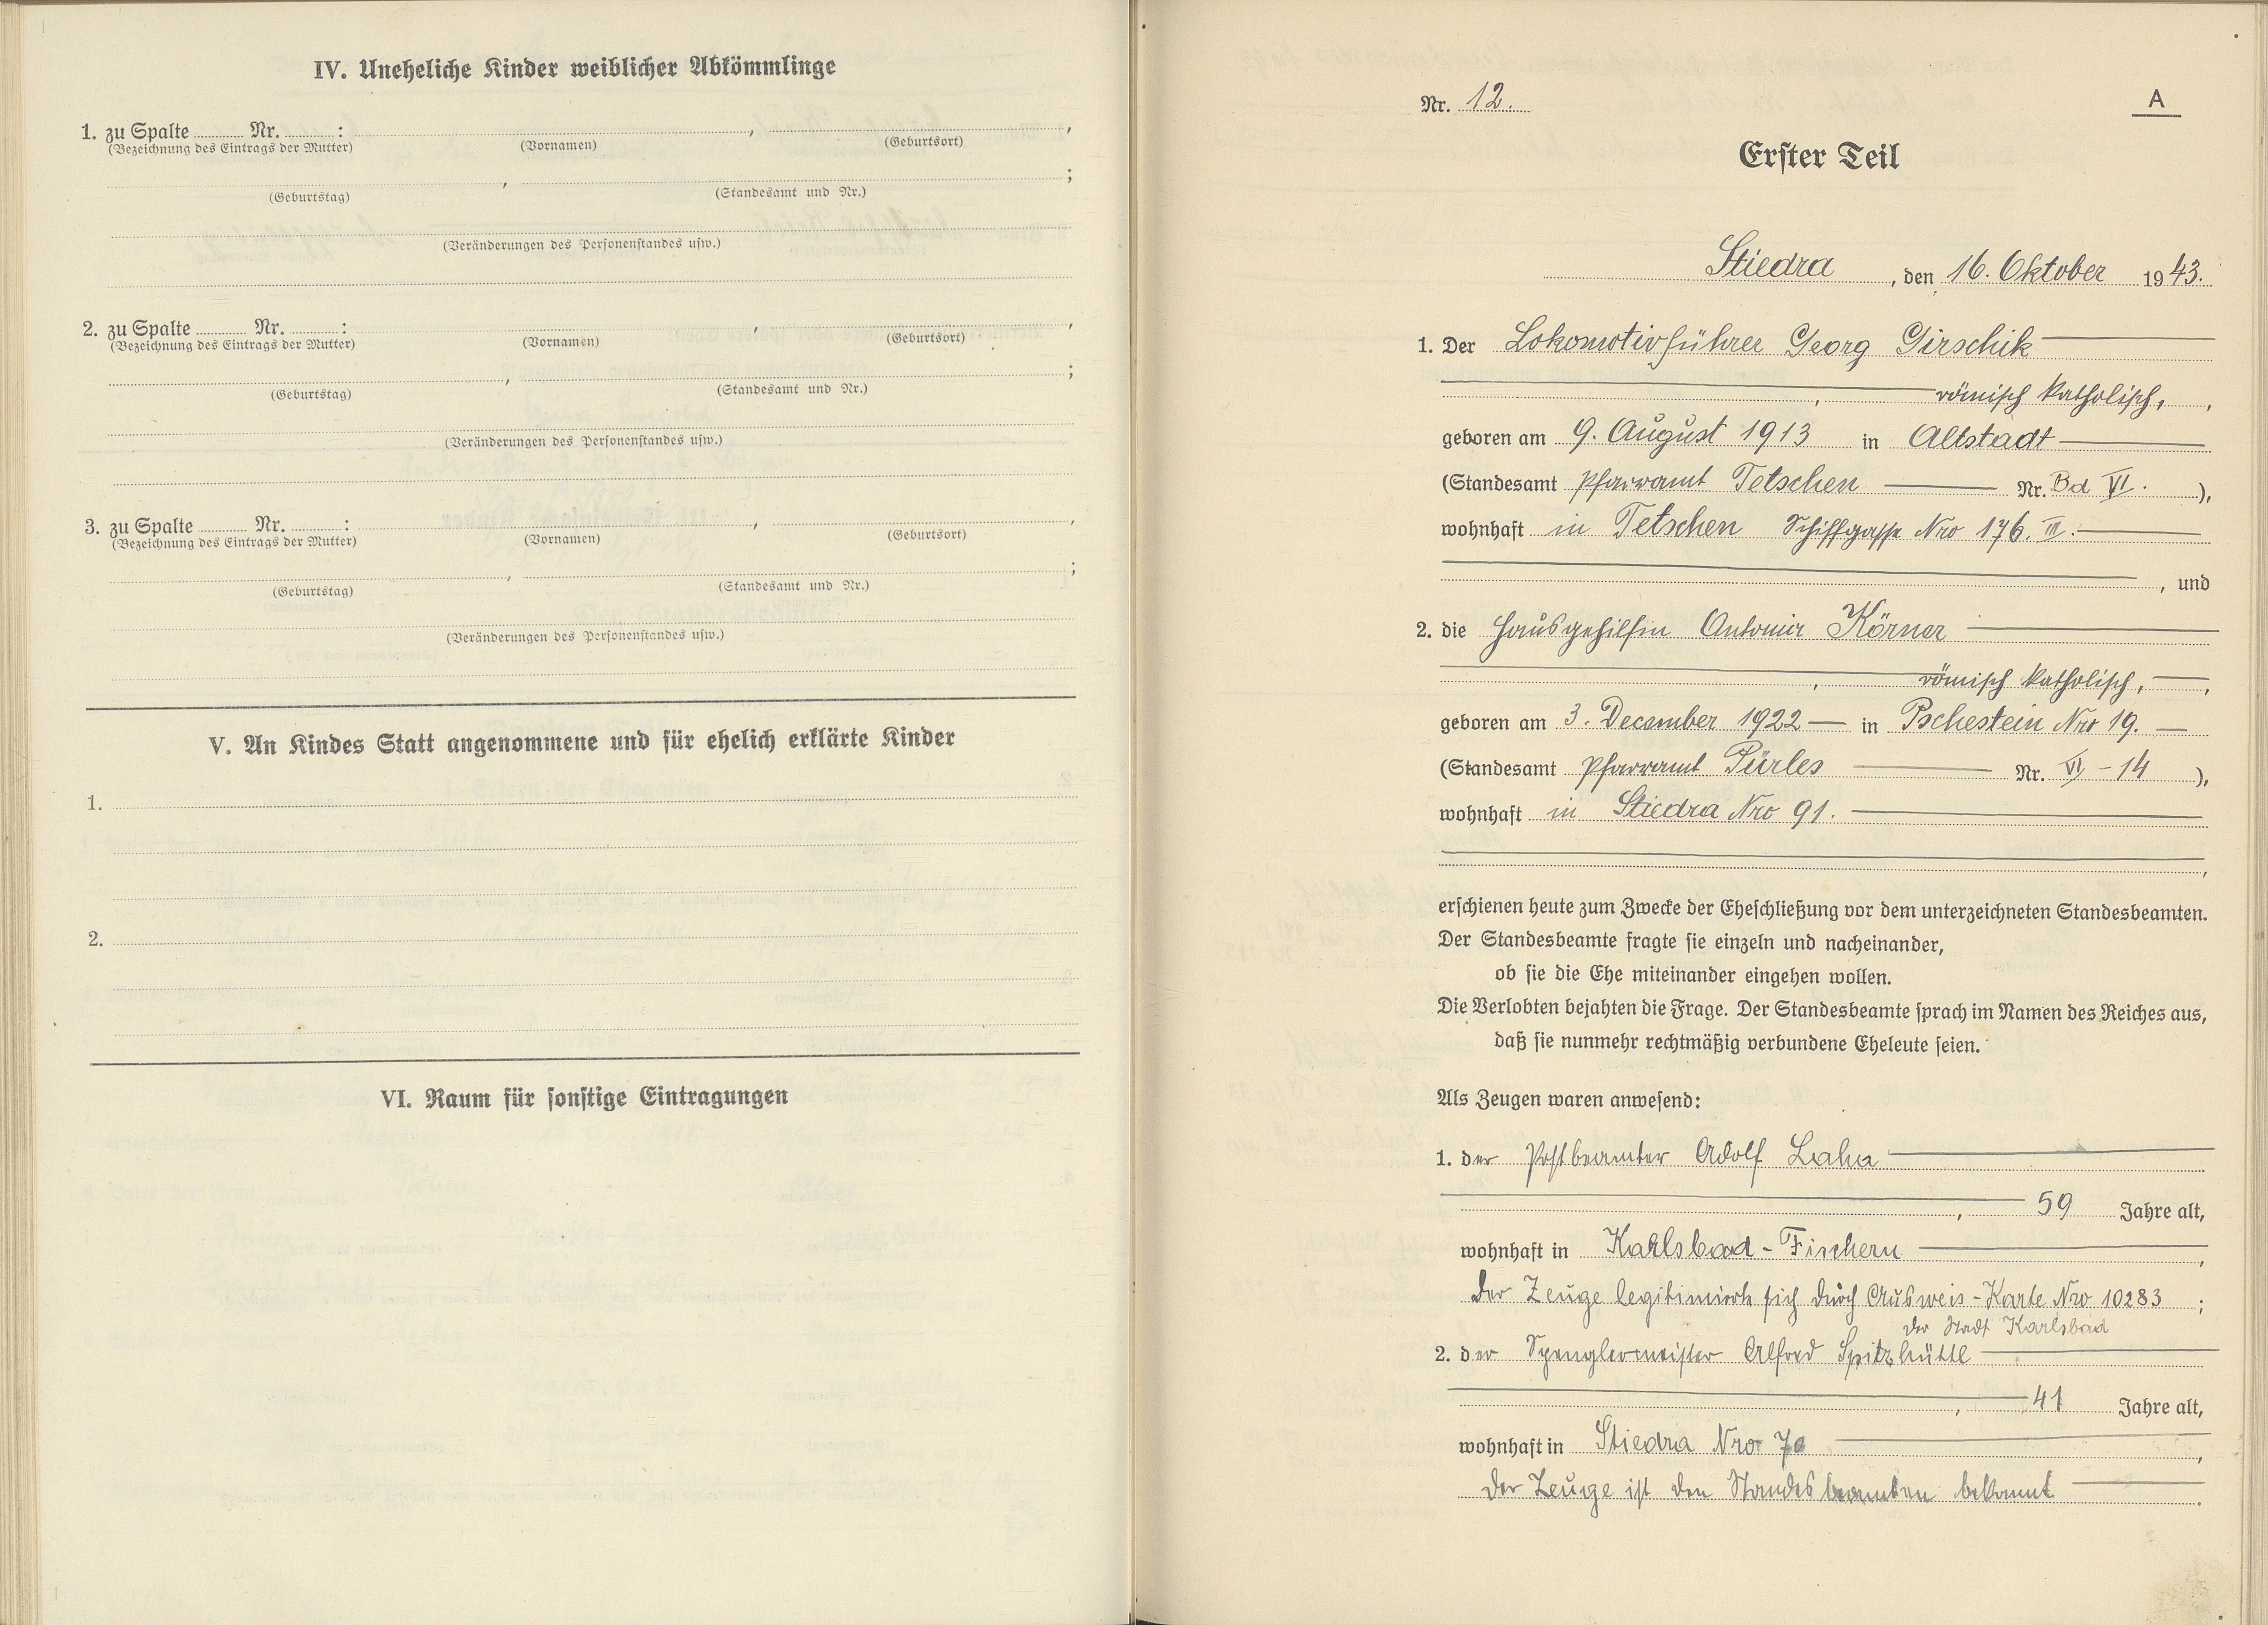 IV. Uneheliche Kinder weiblicher Abkömmlinge
1. zu Spalte ........ Nr. ........ : , ,
(Bezeichnung des Eintrags der Mutter) (Vornamen) (Geburtsort)
, ;
(Geburtstag) (Standesamt und Nr.)
(Veränderungen des Personenstandes usw.)
2. zu Spalte ........ Nr. ........ : , ,
(Bezeichnung des Eintrags der Mutter) (Vornamen) (Geburtsort)
, ;
(Geburtstag) (Standesamt und Nr.)
(Veränderungen des Personenstandes usw.)
3. zu Spalte ........ Nr. ........ : , ,
(Bezeichnung des Eintrags der Mutter) (Vornamen) (Geburtsort)
, ;
(Geburtstag) (Standesamt und Nr.)
(Veränderungen des Personenstandes usw.)
V. An Kindes Statt angenommene und für ehelich erklärte Kinder
1.
2.
VI. Raum für sonstige Eintragungen
Nr. 12. A
Erster Teil
Stiedra, den 16. Oktober 1943.
1. Der Lokomotivführer Georg Girschik
, römisch katholisch, ,
geboren am 9. August 1913 in Altstadt
(Standesamt Pfarramt Tetschen Nr. Bd VI. ),
wohnhaft in Tetschen Schiffgasse Nro 176. III.
, und
2. die Hausgehilfin Antonie Körner
, römisch katholisch, ,
geboren am 3. December 1922 in Pschestein Nro 19.
(Standesamt Pfarramt Pürles Nr. VI - 14 ),
wohnhaft in Stiedra Nro 91.
,
erschienen heute zum Zwecke der Eheschließung vor dem unterzeichneten Standesbeamten.
Der Standesbeamte fragte sie einzeln und nacheinander,
ob sie die Ehe miteinander eingehen wollen.
Die Verlobten bejahten die Frage. Der Standesbeamte sprach im Namen des Reiches aus,
daß sie nunmehr rechtmäßig verbundene Eheleute seien.
Als Zeugen waren anwesend:
1. der Postbeamter Adolf Laha
, 59 Jahre alt,
wohnhaft in Karlsbad - Fischern ,
Der Zeuge legitimierte sich durch Ausweis-Karte Nro 10283 ;
der Stadt Karlsbad
2. der Spenglermeister Alfred Spitzhüttl
, 41 Jahre alt,
wohnhaft in Stiedra Nro 70 ,
Der Zeuge ist den Standesbeamten bekannt .